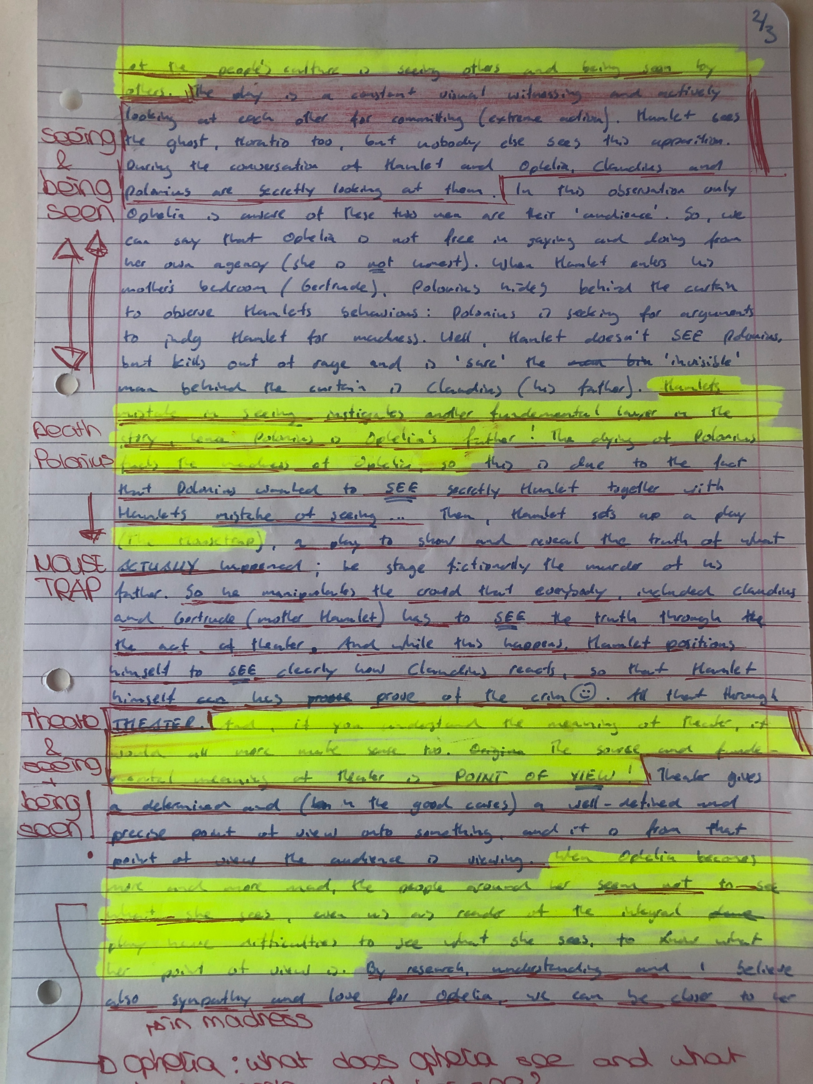 2/3
of the people's culture is seeing others and being seen by
others. The play is a constant visual witnessing and actively
looking at each other for committing (extreme action). Hamlet sees
the ghost, Horatio too, but nobody else sees this apparition.
During the conversation of Hamlet and Ophelia, Claudius and
Polonius are secretly looking at them. In this observation only
Ophelia is aware of these two men are their 'audience'. So, we
can say that Ophelia is not free in saying and doing from
her own agency (she is not honest). When Hamlet enters his
mother's bedroom (Gertrude), Polonius hides behind the curtain
to observe Hamlets behaviours: Polonius is seeking for arguments
to judge Hamlet for madness. Well, Hamlet doesn't SEE Polonius,
but kills out of rage and is 'sure' the 'invisible'
man behind the curtain is Claudius (his father). Hamlets
mistake in seeing instigates another fundamental layer in the
story, hence Polonius is Ophelia's father! The dying of Polonius
fuels the madness of Ophelia, so this is due to the fact
that Polonius wanted to SEE secretly Hamlet together with
Hamlets mistake of seeing... Then, Hamlet sets up a play
(The Mousetrap), a play to show and reveal the truth of what
ACTUALLY happened; he stage fictionally the murder of his
father. So he manipulates the crowd that everybody, included Claudius
and Gertrude (mother Hamlet) has to SEE the truth through the
the act of theater. And while this happens, Hamlet positions
himself to SEE clearly how Claudius reacts, so that Hamlet
himself can has prove of the crim☺. All that through
THEATER. And, if you understand the meaning of theater, it
would all more make sense too. Origina the source and funda-
mental meaning of theater is POINT OF VIEW! Theater gives
a determined and (in the good cases) a well-defined and
precise point of view onto something, and it is from that
point of view the audience is viewing. When Ophelia becomes
more and more mad, the people around her seem not to see
what she sees, even us as reader of the integral
play have difficulties to see what she sees, to know what
her point of view is. By research, understanding and I believe
also sympathy and love for Ophelia, we can be closer to her
in madness
Ophelia: what does Ophelia see and what
seeing
&
being
seen
Death
Polonius
MOUSE
TRAP
Theatre
&
seeing
+
being
seen!